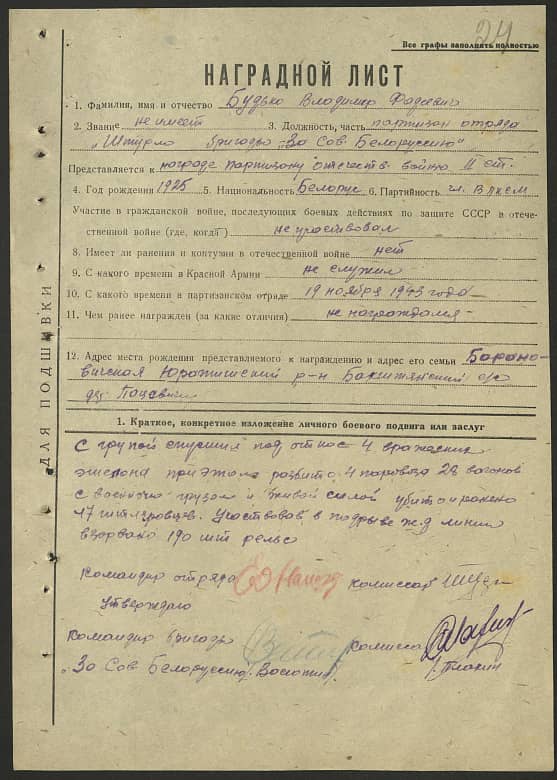 24
Все графы заполнять полностью
НАГРАДНОЙ ЛИСТ
1. Фамилия, имя и отчество Будько Владимир Фадеевич
2. Звание не имеет 3. Должность, часть партизан отряда
"Штурм" бригады "За Сов Белоруссию"
Представляется к награде партизану отечеств. войны II ст.
4. Год рождения 1925 5. Национальность Белорус 6. Партийность чл. ВЛКСМ
Участие в гражданской войне, последующих боевых действиях по защите СССР и отече-
ственной войне (где, когда) не участвовал
8. Имеет ли ранения и контузии в отечественной войне нет
9. С какого времени в Красной Армии не служил
10. С какого времени в партизанском отряде 19 ноября 1943 года
11. Чем ранее награжден (за какие отличия) не награждался
12. Адрес места рождения представляемого к награждению и адрес его семьи Барано-
вичская Юратишский р-н с/с
дер.
ДЛЯ ПОДШИВКИ
1. Краткое, конкретное изложение личного боевого подвига или заслуг
С групой спустил под откос 4 вражеских
эшелона при этом разбито 4 паровоза 28 вагонов
с военною грузом и живой силой убито и ранено
17 гитлеровцев. Участвовал в подрыве ж.д линии
взорвано 190 шт рельс
Командир отряда комиссар
Утверждаю
Командир бригады комиссар
"За Сов Белоруссию"